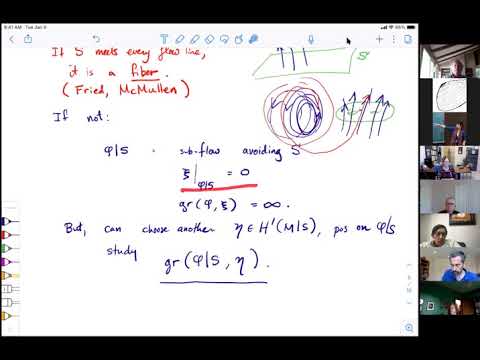 9:41 AM Tue Jan 9
88%
If S meets every flow line,
it is a fiber.
(Fried, McMullen)
S
If not:
φ|S = sub-flow avoiding S
ξ|φ|S = 0
gr(φ, ξ) = ∞.
But, can choose another η ∈ H¹(M|S), pos on φ|S
study
gr(φ|S, η).